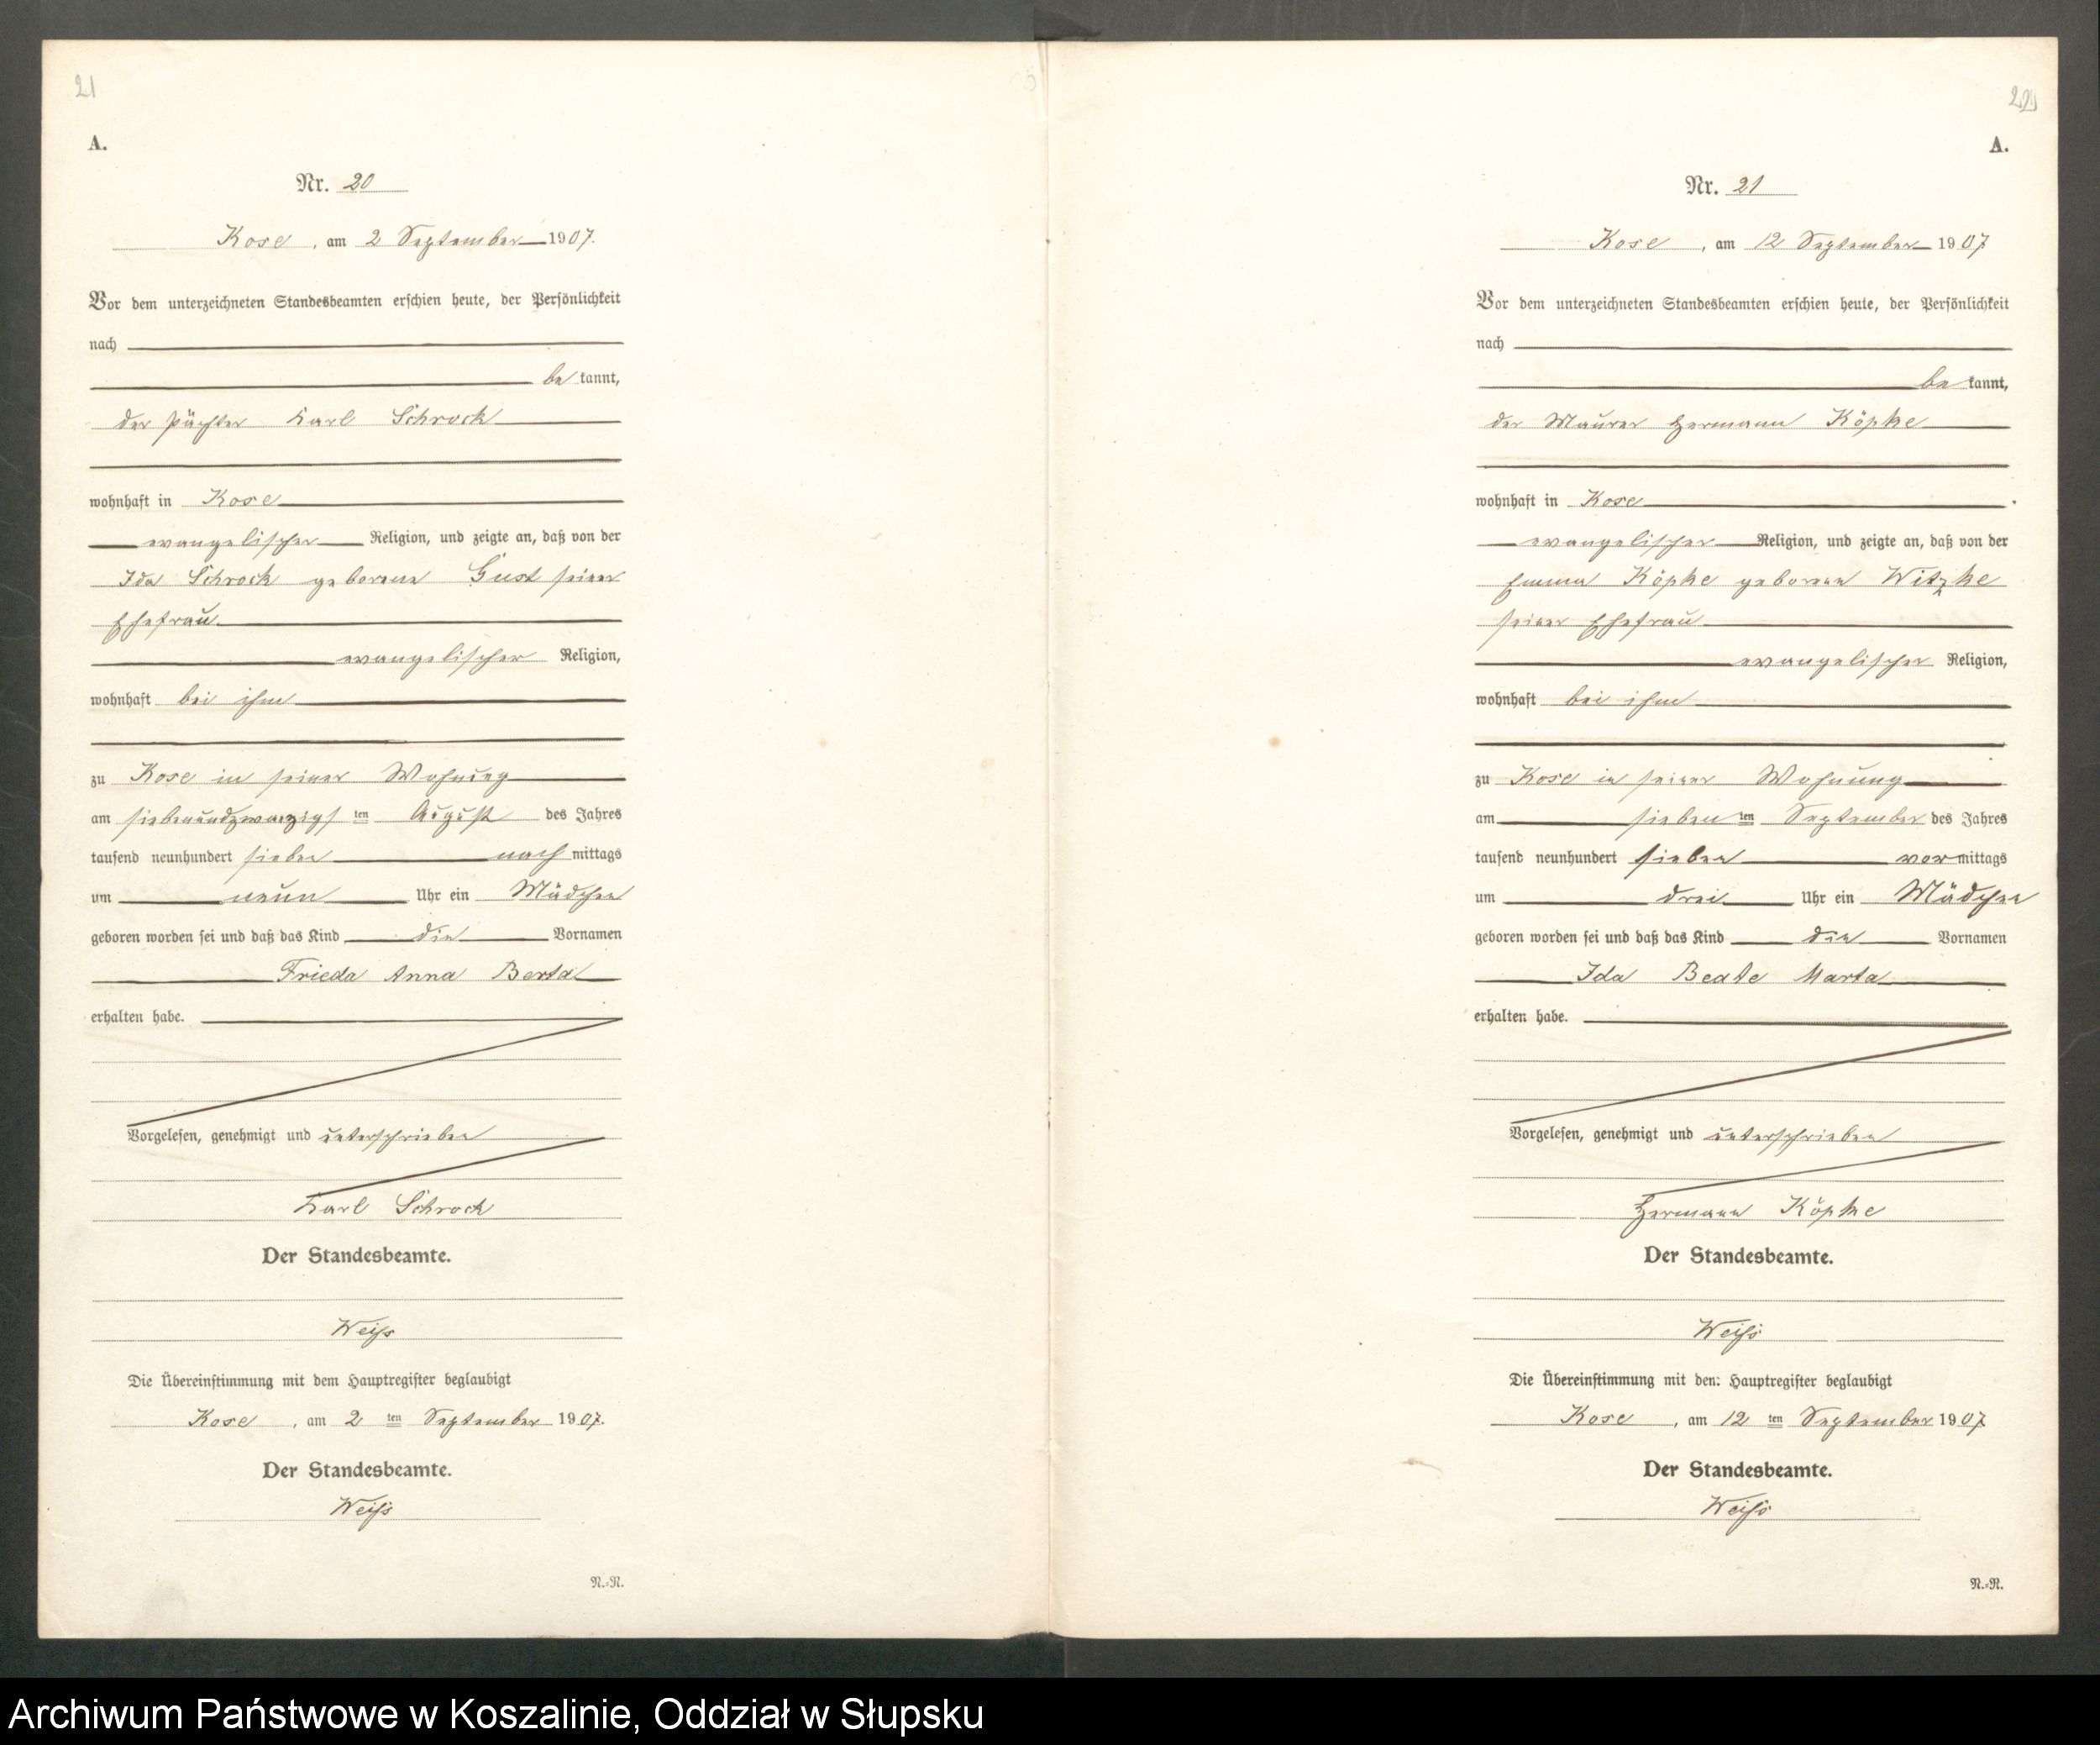 21
A.
Nr. 20
Kose, am 2 September 1907.
Vor dem unterzeichneten Standesbeamten erschien heute, der Persönlichkeit
nach
bekannt,
der Pächter Karl Schrock
wohnhaft in Kose
evangelischer Religion, und zeigte an, daß von der
Ida Schrock geborene Gust seiner
Ehefrau
evangelischer Religion,
wohnhaft bei ihm
zu Kose in seiner Wohnung
am siebenundzwanzigsten August des Jahres
tausend neunhundert sieben nachmittags
um neun Uhr ein Mädchen
geboren worden sei und daß das Kind die Vornamen
Frieda Anna Berta
erhalten habe.
Vorgelesen, genehmigt und unterschrieben
Karl Schrock
Der Standesbeamte.
Weiß
Die Übereinstimmung mit dem Hauptregister beglaubigt
Kose, am 2 ten September 1907.
Der Standesbeamte.
Weiß
N.=N.
22
A.
Nr. 21
Kose, am 12 September 1907
Vor dem unterzeichneten Standesbeamten erschien heute, der Persönlichkeit
nach
bekannt,
der Maurer Hermann Köpke
wohnhaft in Kose
evangelischer Religion, und zeigte an, daß von der
Emma Köpke geborene Witzke
seiner Ehefrau
evangelischer Religion,
wohnhaft bei ihm
zu Kose in seiner Wohnung
am siebenten September des Jahres
tausend neunhundert sieben vormittags
um drei Uhr ein Mädchen
geboren worden sei und daß das Kind die Vornamen
Ida Beate Marta
erhalten habe.
Vorgelesen, genehmigt und unterschrieben
Hermann Köpke
Der Standesbeamte.
Weiß
Die Übereinstimmung mit dem Hauptregister beglaubigt
Kose, am 12 ten September 1907
Der Standesbeamte.
Weiß
N.=N.
Archiwum Państwowe w Koszalinie, Oddział w Słupsku